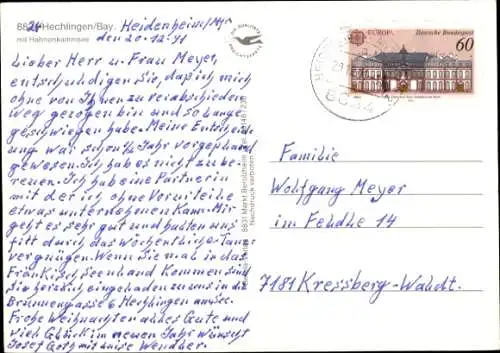 8824 Hechlingen/Bay.
mit Hahnenkammsee
Heidenheim/
den 20.12.91
Lieber Herr u. Frau Meyer,
entschuldigen Sie, daß ich mich
ohne von Ihnen zu verabschieden
weg gezogen bin und so lange
geschwiegen habe. Meine Entscheid
ung war schon ½ Jahr vorgeplant
gewesen. Ich hab es nicht zu be-
reuen. Ich hab eine Partnerin
mit der ich ohne Vorurteile
etwas unternehmen kann. Mir
geht es sehr gut und halten uns
fitt durch das Wöchentliche Tanz
vergnügen. Wenn Sie mal in das
Fränkisch Seenland kommen sind
sie herzlich eingeladen zu uns in die
Brunnengasse 6 Hechlingen am See.
Frohe Weihnachten alles Gute und
viel Glück im neuen Jahr wünscht
Josef mit Luise
8831 Markt Berolzheim
Nachdruck verboten
EUROPA
Deutsche Bundespost
60
Familie
Wolfgang Meyer
im Feldle 14
7181 Kressberg-Waldt.